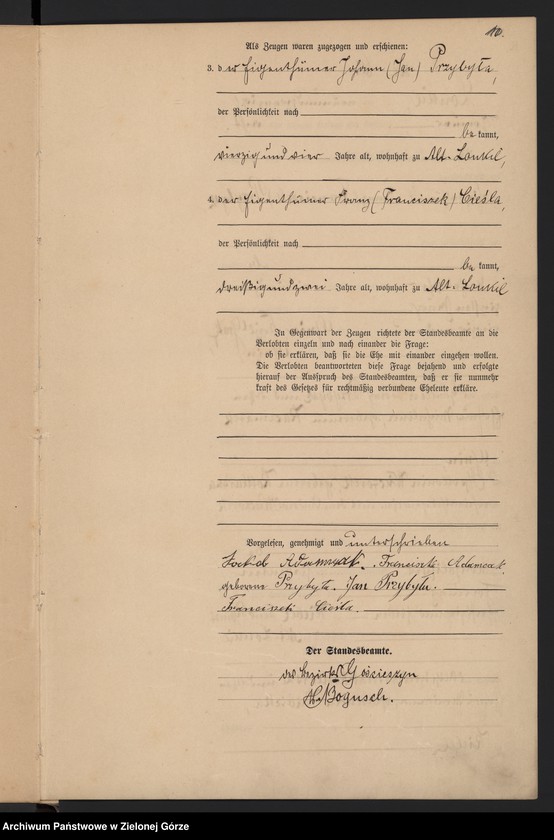 10.
Als Zeugen waren zugezogen und erschienen:
3. der Eigenthümer Johann (Jan) Przybyła,
der Persönlichkeit nach
bekannt,
vierzig und vier Jahre alt, wohnhaft zu Alt-Lonkie,
4. der Eigenthümer Franz (Franciszek) Cieśla,
der Persönlichkeit nach
bekannt,
dreißig und zwei Jahre alt, wohnhaft zu Alt-Lonkie
In Gegenwart der Zeugen richtete der Standesbeamte an die
Verlobten einzeln und nach einander die Frage:
ob sie erklären, daß sie die Ehe mit einander eingehen wollen.
Die Verlobten beantworteten diese Frage bejahend und erfolgte
hierauf der Ausspruch des Standesbeamten, daß er sie nunmehr
kraft des Gesetzes für rechtmäßig verbundene Eheleute erkläre.
Vorgelesen, genehmigt und unterschrieben
Adamczak.
geborene Przybyła. Jan Przybyła.
Cieśla.
Der Standesbeamte.
des Bezirks Gościeszyn
Bogusch.
Archiwum Państwowe w Zielonej Górze